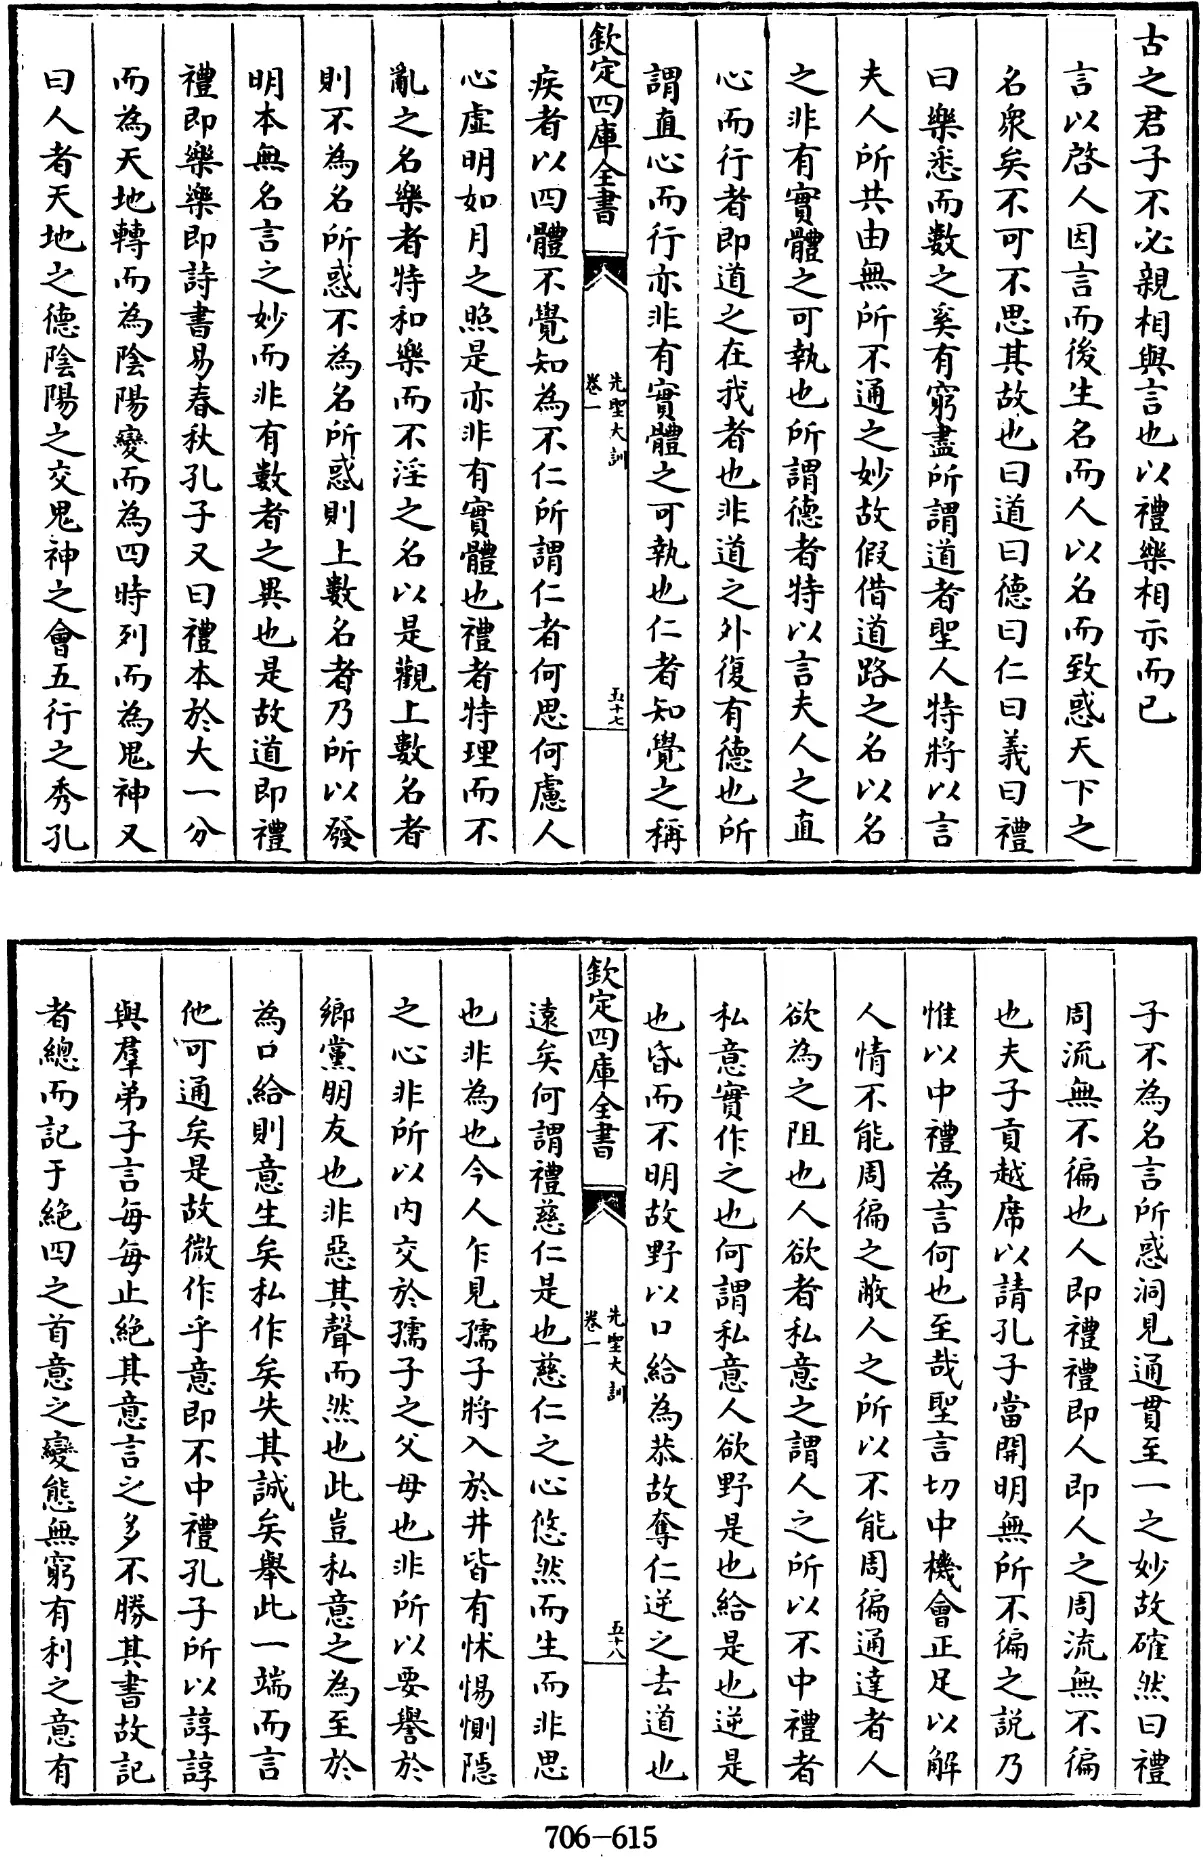 古之君子不必親相與言也以禮樂相示而已
言以啓人因言而後生名而人以名而致惑天下之
名衆矣不可不思其故也曰道曰德曰仁曰義曰禮
曰樂悉而數之奚有窮盡所謂道者聖人特將以言
夫人所共由無所不通之妙故假借道路之名以名
之非有實體之可執也所謂德者特以言夫人之直
心而行者即道之在我者也非道之外復有德也所
謂直心而行亦非有實體之可執也仁者知覺之稱
欽定四庫全書
先聖大訓
卷一
五十七
疾者以四體不覺知為不仁所謂仁者何思何慮人
心虛明如月之照是亦非有實體也禮者特理而不
亂之名樂者特和樂而不淫之名以是觀上數名者
則不為名所惑不為名所惑則上數名者乃所以發
明本無名言之妙而非有數者之異也是故道即禮
禮即樂樂即詩書易春秋孔子又曰禮本於大一分
而為天地轉而為陰陽變而為四時列而為鬼神又
曰人者天地之德陰陽之交鬼神之會五行之秀孔
子不為名言所惑洞見通貫至一之妙故確然曰禮
周流無不徧也人即禮禮即人即人之周流無不徧
也夫子貢越席以請孔子當開明無所不徧之說乃
惟以中禮為言何也至哉聖言切中機會正足以解
人情不能周徧之蔽人之所以不能周徧通達者人
欲為之阻也人欲者私意之謂人之所以不中禮者
私意實作之也何謂私意人欲野是也給是也逆是
也昏而不明故野以口給為恭故奪仁逆之去道也
欽定四庫全書
先聖大訓
卷一
五十八
遠矣何謂禮慈仁是也慈仁之心悠然而生而非思
也非為也今人乍見孺子將入於井皆有怵惕惻隱
之心非所以內交於孺子之父母也非所以要譽於
鄉黨朋友也非惡其聲而然也此豈私意之為至於
為口給則意生矣私作矣失其誠矣舉此一端而言
他可通矣是故微作乎意即不中禮孔子所以諄諄
與羣弟子言每每止絶其意言之多不勝其書故記
者總而記于絶四之首意之變態無窮有利之意有
706-615